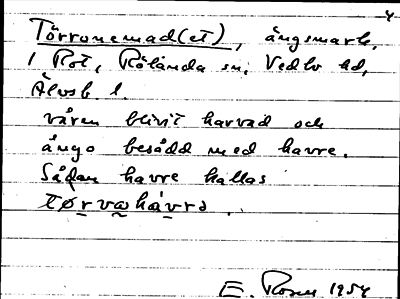 4
Törronemad(et), ängsmark,
i Rot, Rölanda sn, Vedbo hd,
Älvsb. l.
våren blivit harvad och
ånyo besådd med havre.
Sådan havre kallas
tørvahavrə.
E. Rosén 1954